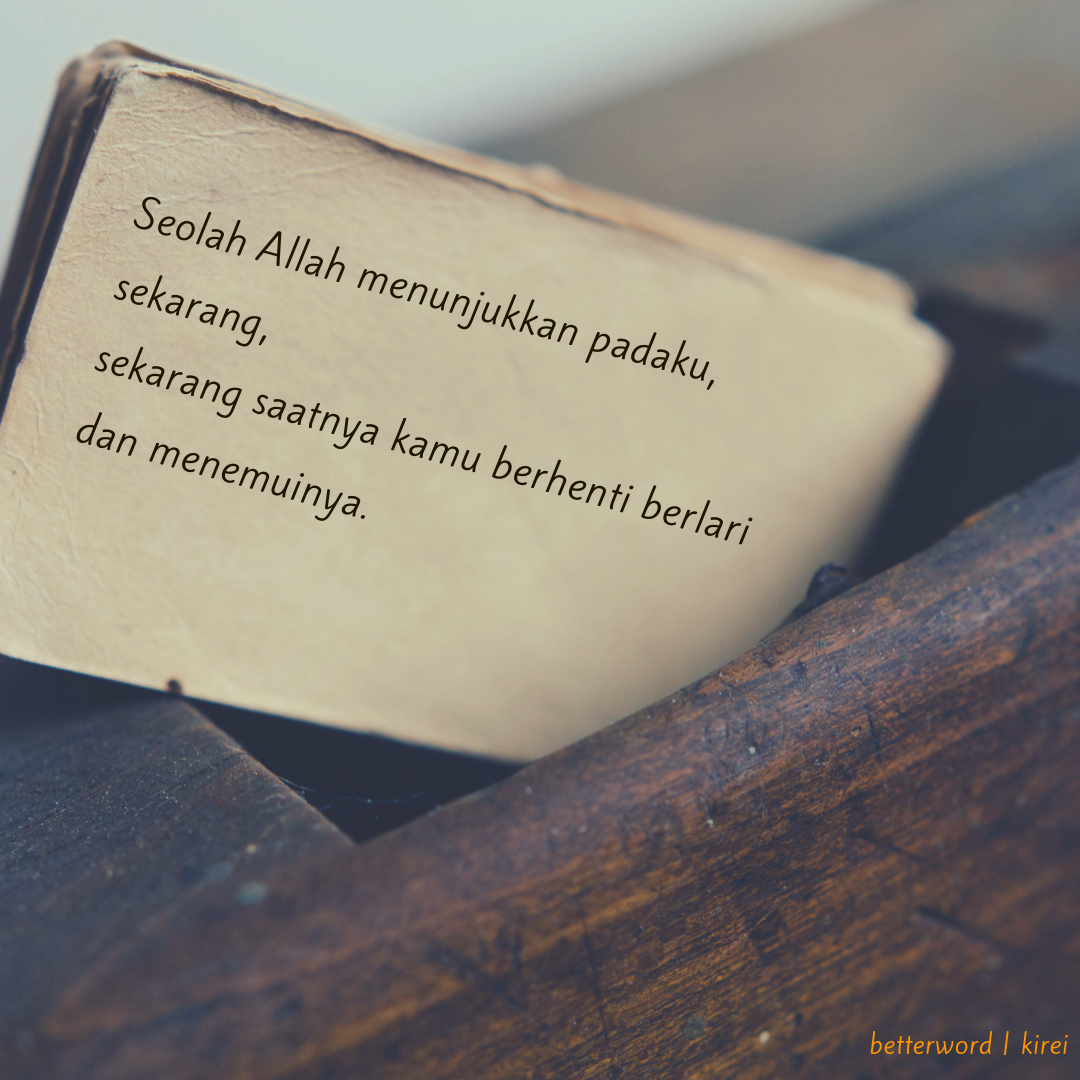 Seolah Allah menunjukkan padaku,
sekarang,
sekarang saatnya kamu berhenti berlari
dan menemuinya.
betterword | kirei